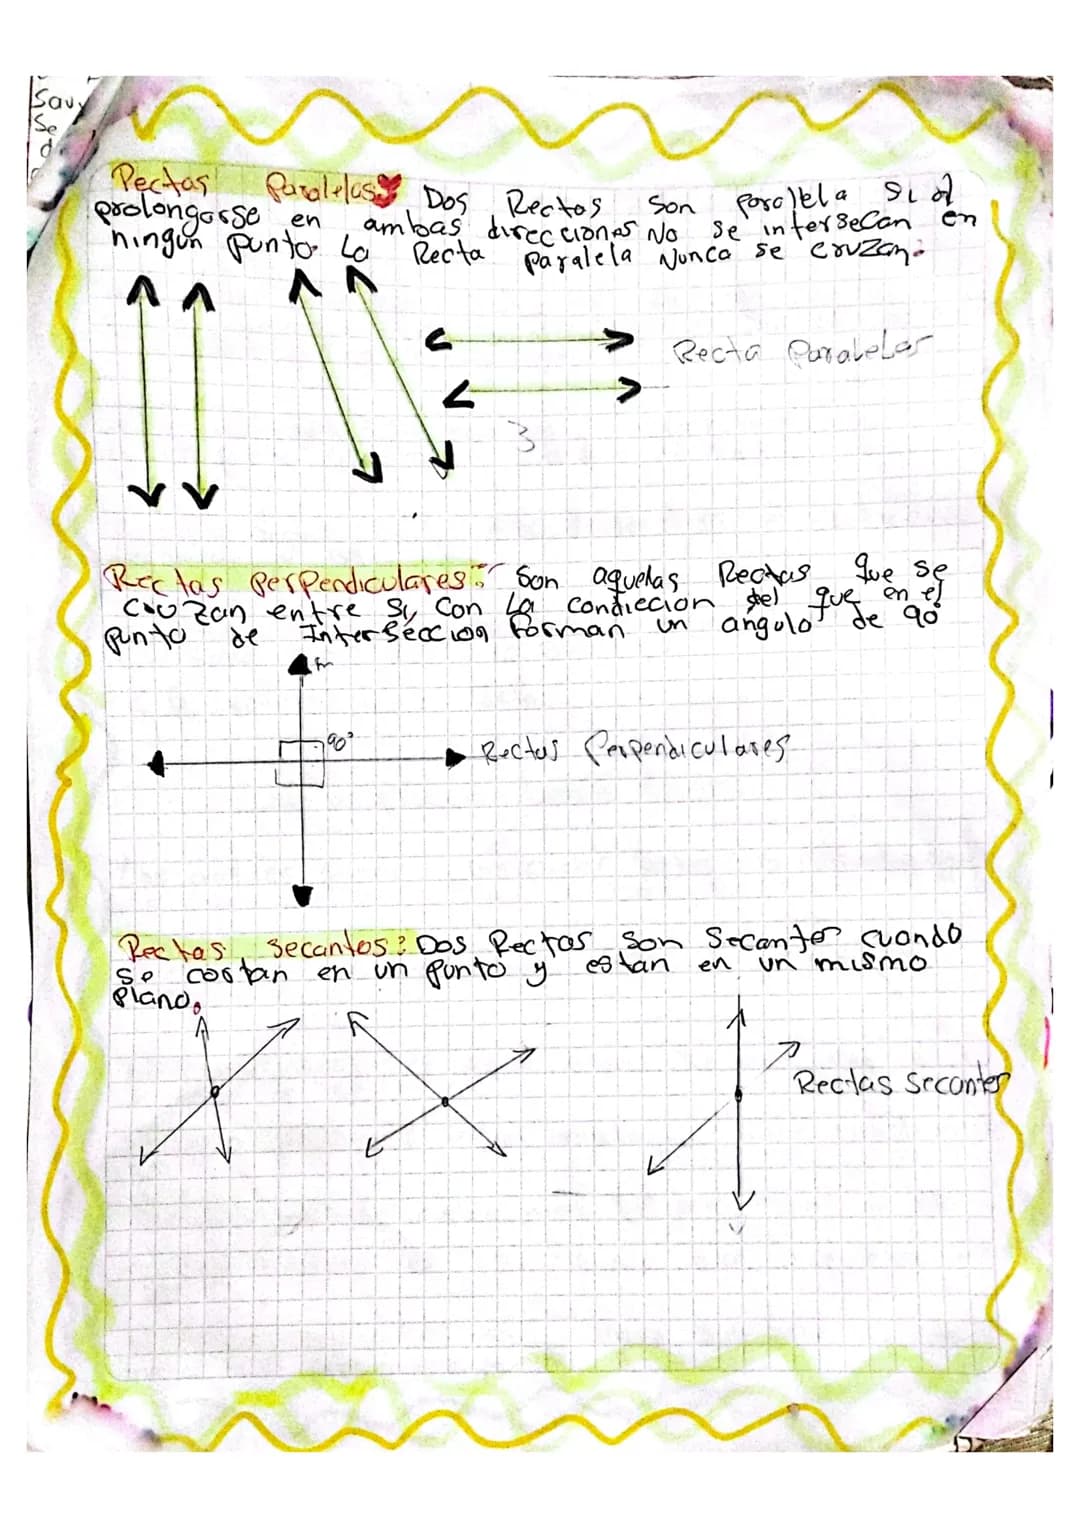 Sav
Se
d
Rectas Paralelas Dos Rectas son paralela si al
prolongarse en ambas direcciones No se intersecan en
ningún punto. La Recta paralela Nunca se cruzan.
Recta Paralelas
3
Rectas Perpendiculares: Son aquellas Rectas que se
cruzan entre si, con La condiecion del que en el
punto de Interseccion forman un angulo de 90°
90°
Rectas Perpendiculares
Rectas secantes: Dos Rectas son Secantes cuando
se cortan en un punto y estan en un mismo
plano.
Rectas secantes